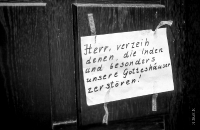 Herr, verzeih
denen, die Inden
und besonders
unsere Gotteshäuser
zerstören!